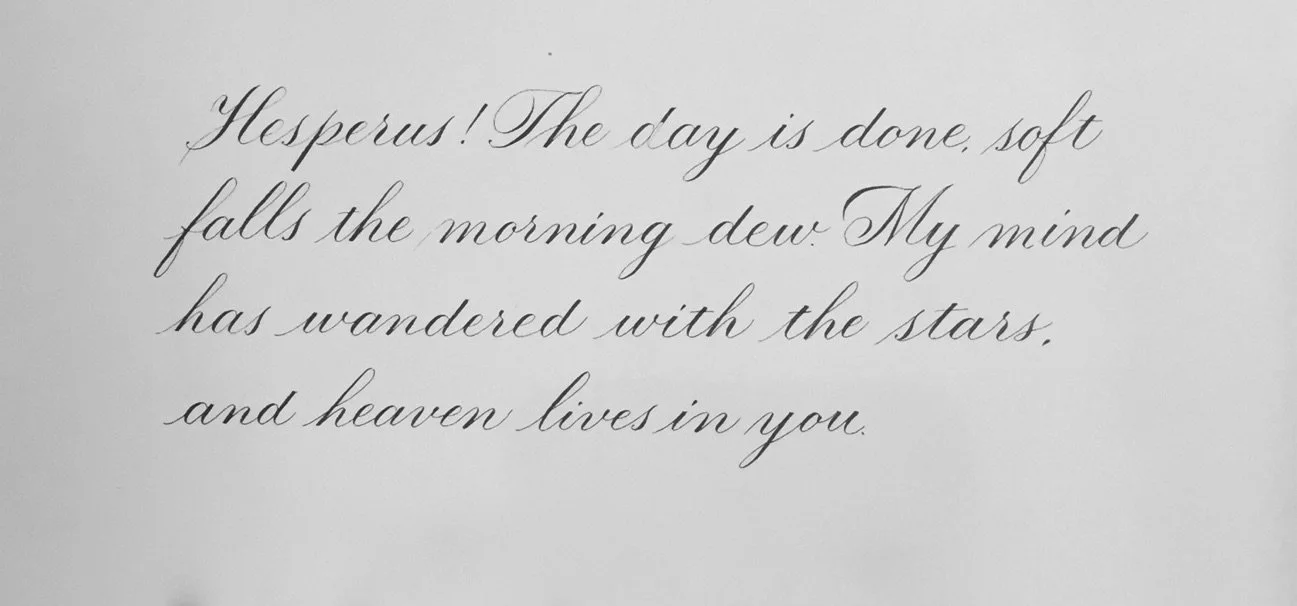 Hesperus! The day is done, soft
falls the morning dew. My mind
has wandered with the stars,
and heaven lives in you.